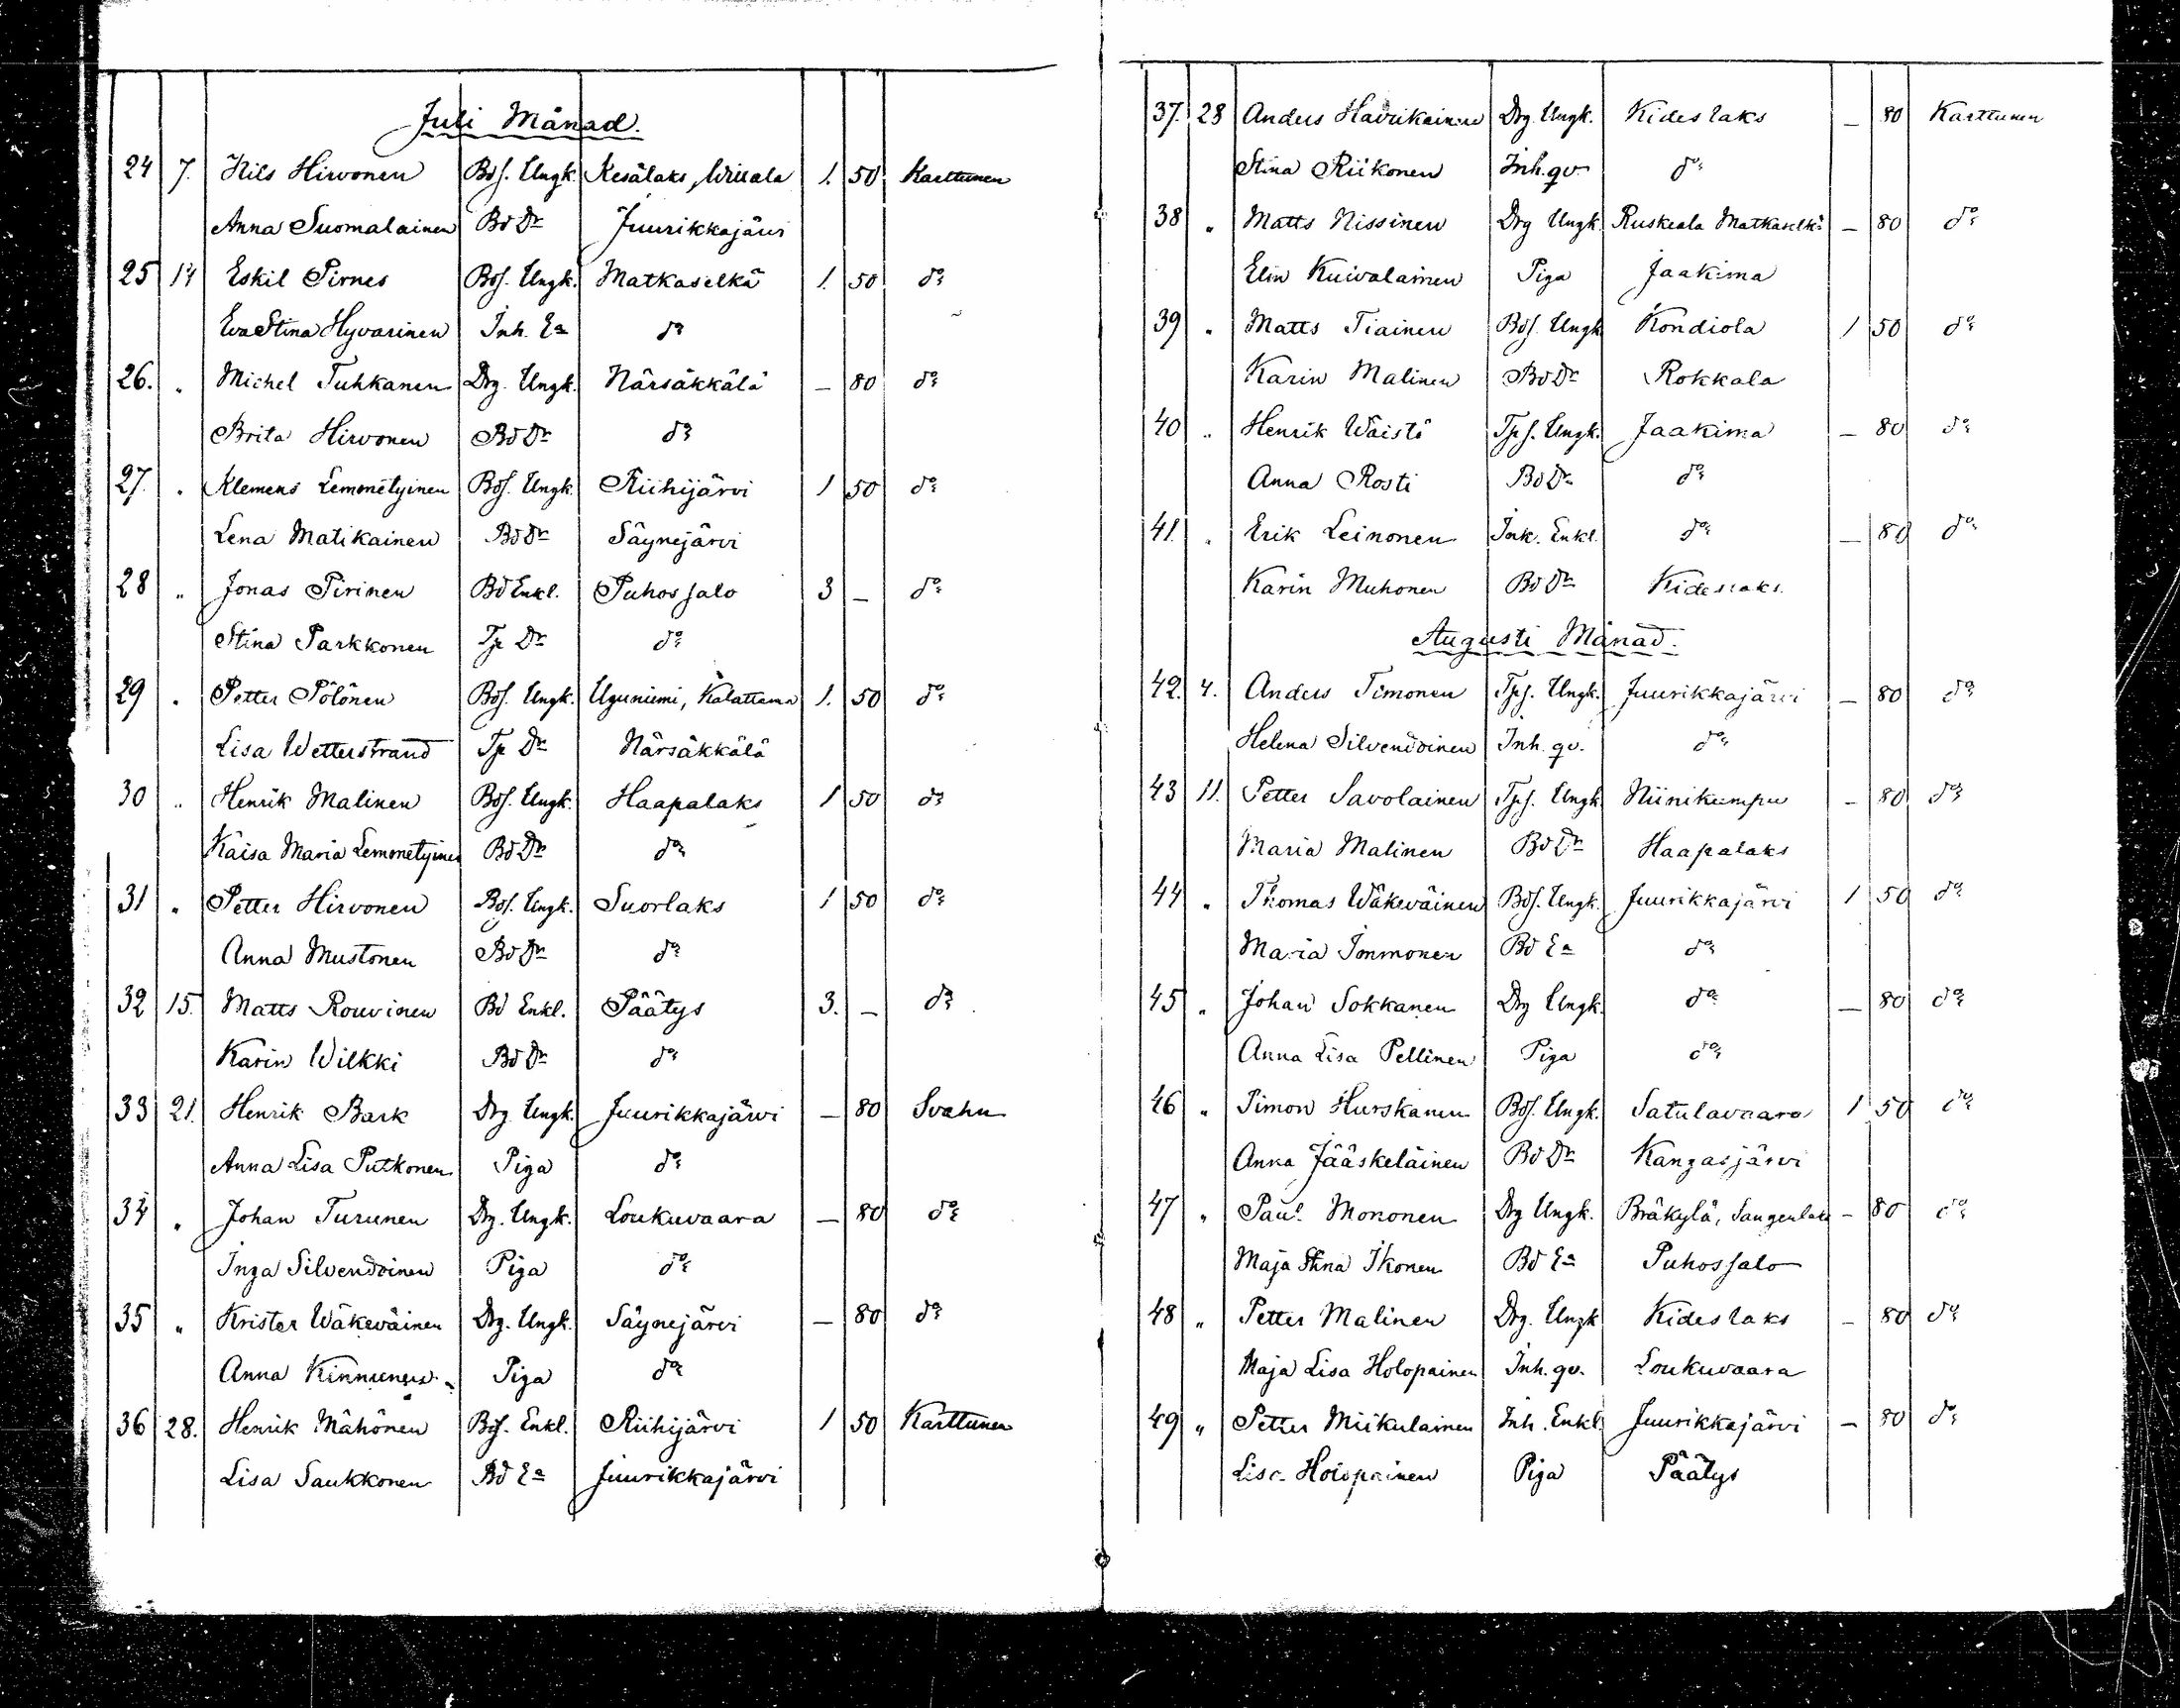 Juli Månad.
24 7. Nils Hirvonen Bds. Ungk. Kesälaks, Willala 1. 50 Karttunen
Anna Suomalainen Bd Dr Juurikkajärvi
25 14 Eskil Pirnes Bds. Ungk. Matkaselkä 1. 50 do
Eva Stina Hyvarinen Inh. Ea do
26. " Michel Tuhkanen Drg. Ungk. Närsäkkälä — 80 do
Brita Hirvonen Bd Dr do
27. " Klemens Lemmetyinen Bds. Ungk. Riihijärvi 1 50 do
Lena Matikainen Bd Dr Säynejärvi
28 " Jonas Pirinen Bd Enkl. Puhossalo 3 — do
Stina Parkkonen Tp Dr do
29 " Petter Pölönen Bds. Ungk. Uguniemi, 1. 50 do
Lisa Wetterstrand Tp Dr Närsäkkälä
30 " Henrik Malinen Bds. Ungk. Haapalaks 1 50 do
Kaisa Maria Lemmetyinen Bd Dr do
31 " Petter Hirvonen Bds. Ungk. Suorlaks 1 50 do
Anna Mustonen Bd Dr do
32 15. Matts Rouvinen Bd Enkl. Päätys 3. — do
Karin Wilkki Bd Dr do
33 21. Henrik Bark Drg. Ungk. Juurikkajärvi — 80 Svahn
Anna Lisa Putkonen Piga do
34 " Johan Turunen Drg. Ungk. Loukuvaara — 80 do
Inga Silvendoinen Piga do
35 " Krister Wäkeväinen Drg. Ungk. Säynejärvi — 80 do
Anna Kinnunen Piga do
36 28. Henrik Mähönen Bds. Enkl. Riihijärvi 1 50 Karttunen
Lisa Saukkonen Bd Ea Juurikkajärvi
37. 28 Anders Havukainen Drg. Ungk. Kideslaks — 80 Karttunen
Stina Riikonen Inh. qv do
38 " Matts Nissinen Drg Ungk. Ruskeala Matkaselkä — 80 do
Elin Kuivalainen Piga Jaakima
39 " Matts Tiainen Bds. Ungk Kondiola 1 50 do
Karin Malinen Bd Dr Rokkala
40 " Henrik Wäistö Tps. Ungk. Jaakima — 80 do
Anna Rosti Bd Dr do
41. " Erik Leinonen Inh. Enkl. do — 80 do
Karin Muhonen Bd Dr Kideslaks.
Augusti Månad.
42. 4. Anders Timonen Tps. Ungk. Juurikkajärvi — 80 do
Helena Silvendoinen Inh. qv. do
43 11. Petter Savolainen Tps. Ungk Niinikumpu — 80 do
Maria Malinen Bd Dr Haapalaks
44 " Thomas Wäkeväinen Bds. Ungk. Juurikkajärvi 1 50 do
Maria Immonen Bd Ea do
45 " Johan Sokkanen Drg Ungk. do — 80 do
Anna Lisa Pellinen Piga do
46 " Simon Hurskanen Bds. Ungk. Satulavaara 1 50 do
Anna Jääskeläinen Bd Dr Kangasjärvi
47 " Paul Mononen Drg Ungk. Bräkylä, Sangenlaks — 80 do
Maja Stina Ikonen Bd Ea Puhossalo
48 " Petter Malinen Drg. Ungk Kideslaks — 80 do
Maja Lisa Holopainen Inh. qv. Loukuvaara
49 " Petter Miikulainen Inh. Enkl. Juurikkajärvi — 80 do
Lisa Holopainen Piga Päätys